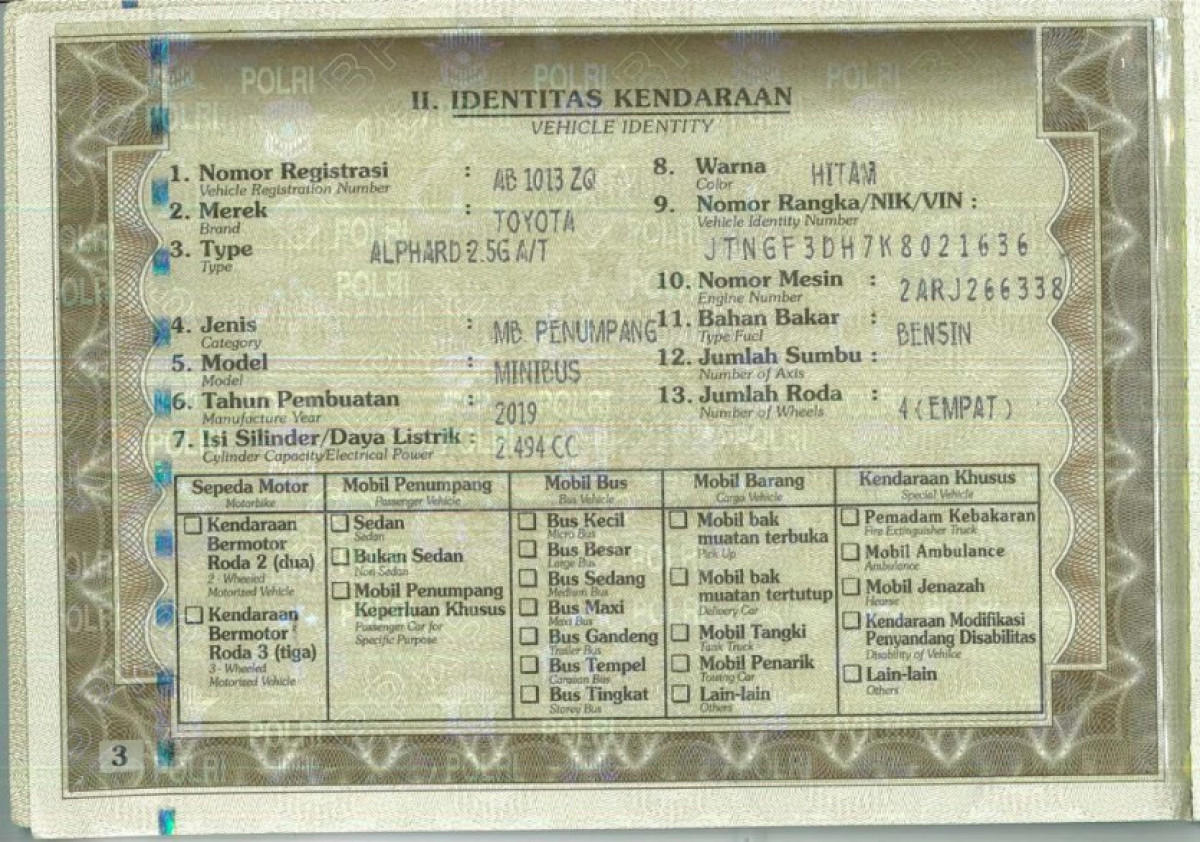 II. IDENTITAS KENDARAAN
VEHICLE IDENTITY
1. Nomor Registrasi : AB 1013 ZQ
Vehicle Registration Number
2. Merek : TOYOTA
Brand
3. Type ALPHARD 2.5G A/T
Type
4. Jenis : MB. PENUMPANG
Category
5. Model : MINIBUS
Model
6. Tahun Pembuatan : 2019
Manufacture Year
7. Isi Silinder/Daya Listrik : 2.494 CC
Cylinder Capacity/Electrical Power
8. Warna HITAM
Color
9. Nomor Rangka/NIK/VIN :
Vehicle Identity Number
JTNGF3DH7K8021636
10. Nomor Mesin : 2ARJ266338
Engine Number
11. Bahan Bakar : BENSIN
Type Fuel
12. Jumlah Sumbu :
Number of Axis
13. Jumlah Roda : 4 ( EMPAT )
Number of Wheels
Sepeda Motor
Motorbike
Kendaraan
Bermotor
Roda 2 (dua)
2 - Wheeled
Motorized Vehicle
Kendaraan
Bermotor
Roda 3 (tiga)
3 - Wheeled
Motorized Vehicle
Mobil Penumpang
Passenger Vehicle
Sedan
Sedan
Bukan Sedan
Non Sedan
Mobil Penumpang
Keperluan Khusus
Passenger Car for
Specific Purpose
Mobil Bus
Bus Vehicle
Bus Kecil
Micro Bus
Bus Besar
Large Bus
Bus Sedang
Medium Bus
Bus Maxi
Maxi Bus
Bus Gandeng
Trailer Bus
Bus Tempel
Caravan Bus
Bus Tingkat
Storey Bus
Mobil Barang
Cargo Vehicle
Mobil bak
muatan terbuka
Pick Up
Mobil bak
muatan tertutup
Delivery Car
Mobil Tangki
Tank Truck
Mobil Penarik
Touring Car
Lain-lain
Others
Kendaraan Khusus
Special Vehicle
Pemadam Kebakaran
Fire Extinguisher Truck
Mobil Ambulance
Ambulance
Mobil Jenazah
Hearse
Kendaraan Modifikasi
Penyandang Disabilitas
Disability of Vehilce
Lain-lain
Others
3